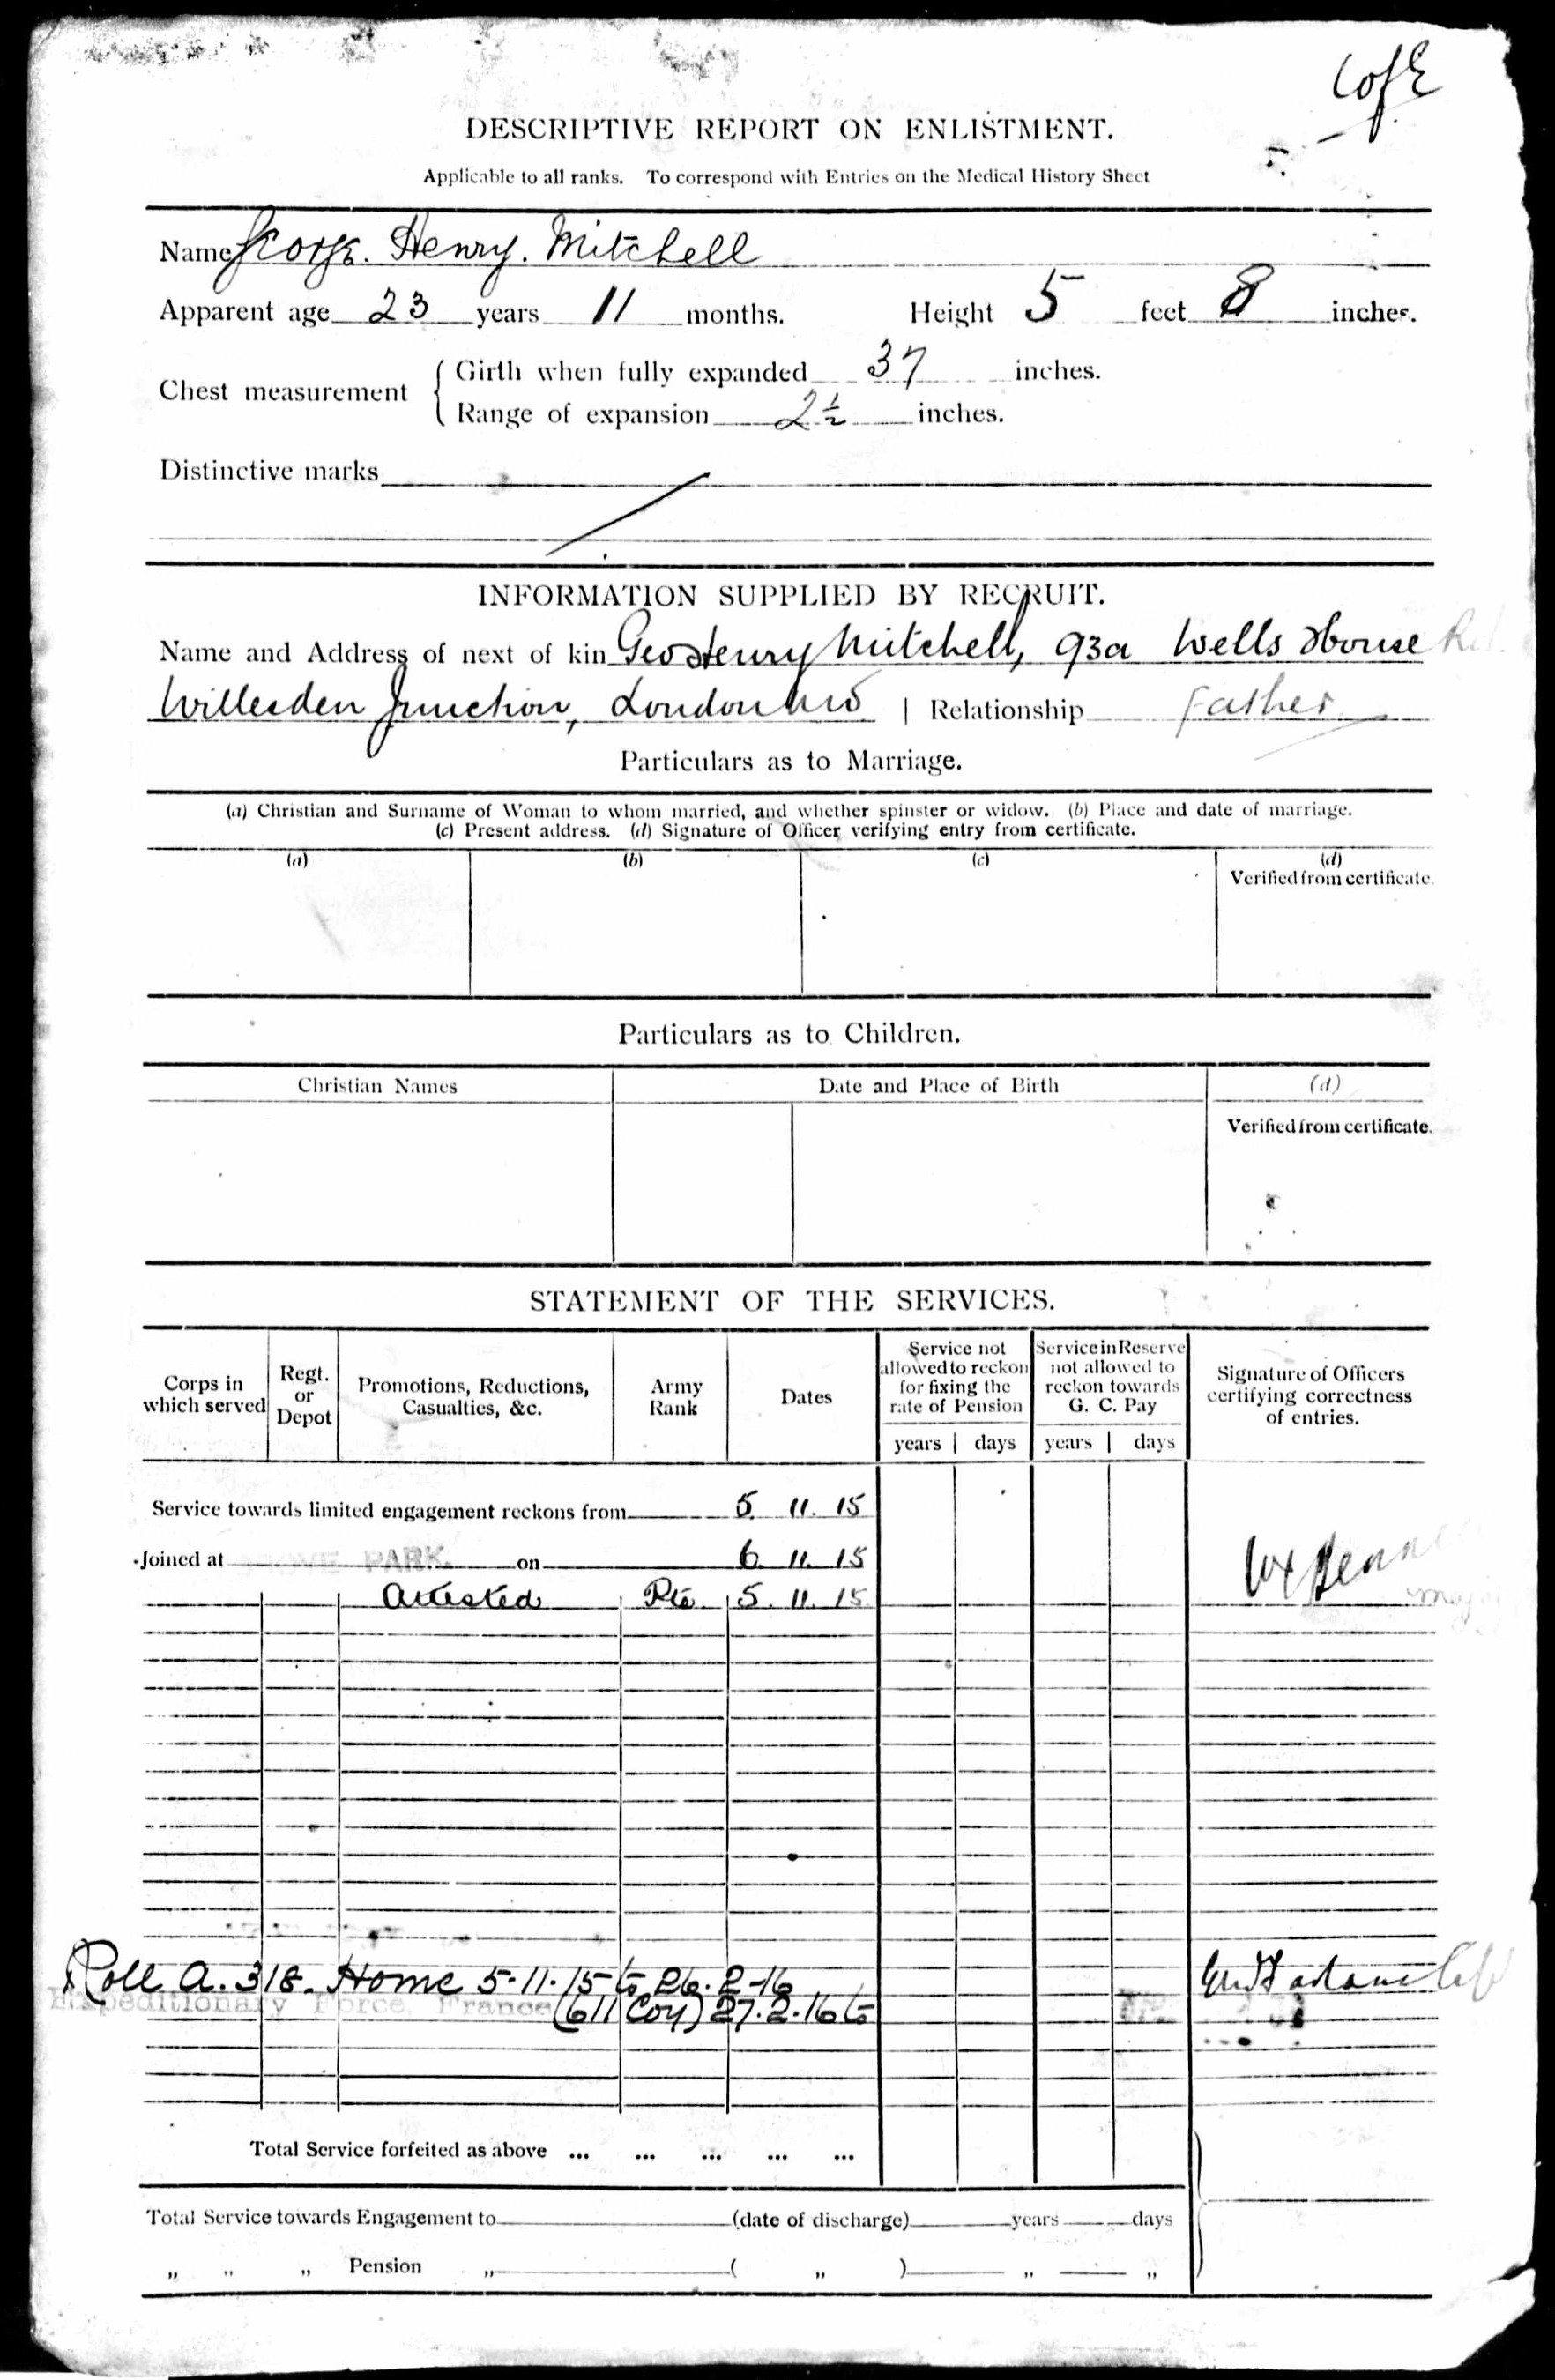 C of E
DESCRIPTIVE REPORT ON ENLISTMENT.
Applicable to all ranks. To correspond with Entries on the Medical History Sheet
Name George. Henry. Mitchell
Apparent age 23 years 11 months. Height 5 feet 8 inches.
Chest measurement { Girth when fully expanded 37 inches.
Range of expansion 2½ inches.
Distinctive marks
INFORMATION SUPPLIED BY RECRUIT.
Name and Address of next of kin Geo Henry Mitchell, 93a Wells House Rd.
Willesden Junction, London NW | Relationship Father
Particulars as to Marriage.
(a) Christian and Surname of Woman to whom married, and whether spinster or widow. (b) Place and date of marriage.
(c) Present address. (d) Signature of Officer verifying entry from certificate.
(a) (b) (c) (d)
Verified from certificate.
Particulars as to Children.
Christian Names Date and Place of Birth (d)
Verified from certificate.
STATEMENT OF THE SERVICES.
Corps in which served Regt. or Depot Promotions, Reductions, Casualties, &c. Army Rank Dates Service not allowed to reckon for fixing the rate of Pension Service in Reserve not allowed to reckon towards G. C. Pay Signature of Officers certifying correctness of entries.
years | days years | days
Service towards limited engagement reckons from 5. 11. 15
Joined at GROVE PARK. on 6. 11. 15
Attested Pte 5. 11. 15
Roll A. 318. Home 5.11.15 to 26.2-16
Expeditionary Force, France (611 Coy) 27.2.16 to
Total Service forfeited as above ... ... ... ... ...
Total Service towards Engagement to (date of discharge) years days
„ „ „ Pension „ ( „ ) „ „